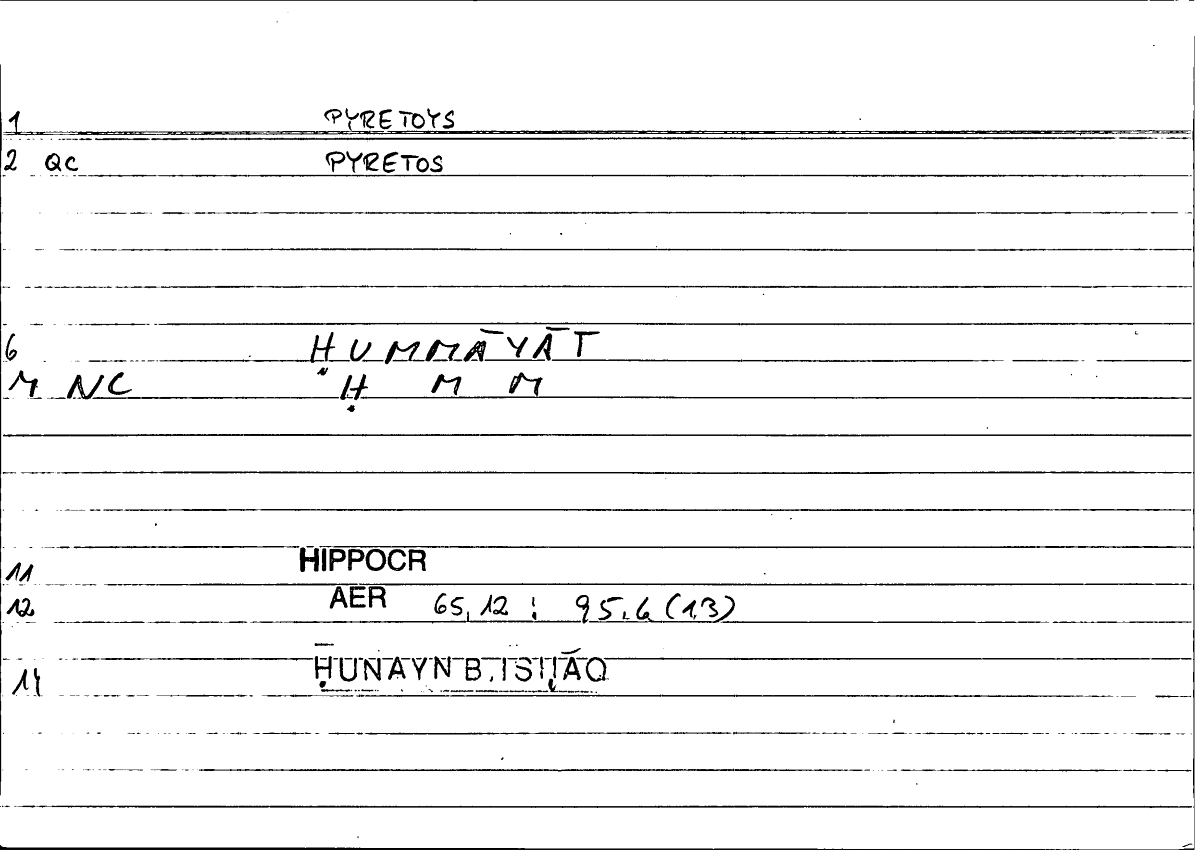 1 PYRETOYS
2 QC PYRETOS
6 ḤUMMĀYĀT
M NC Ḥ M M
11 HIPPOCR
12 AER 65,12 : 95,6 (1,3)
14 ḤUNAYN B. ISḤĀQ